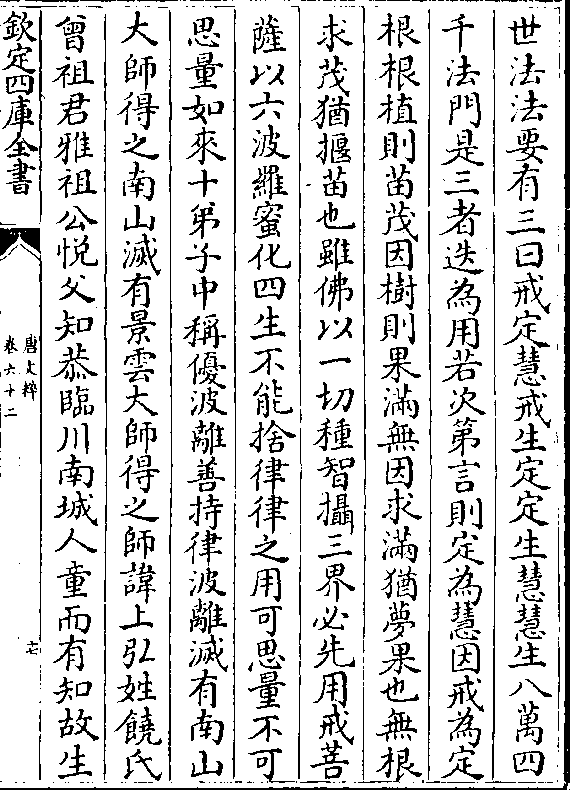 世法法要有三曰戒定慧戒生定定生慧慧生八萬四
千法門是三者迭為用若次第言則定為慧因戒為定
根根植則苗茂因樹則果滿無因求滿猶夢果也無根
求茂猶揠苗也雖佛以一切種智攝三界必先用戒菩
薩以六波羅蜜化四生不能捨律律之用可思量不可
思量如來十弟子中稱優波離善持律波離滅有南山
大師得之南山滅有景雲大師得之師諱上弘姓饒氏
曾祖君雅祖公悅父知恭臨川南城人童而有知故生
欽定四庫全書
唐文粹
卷六十二